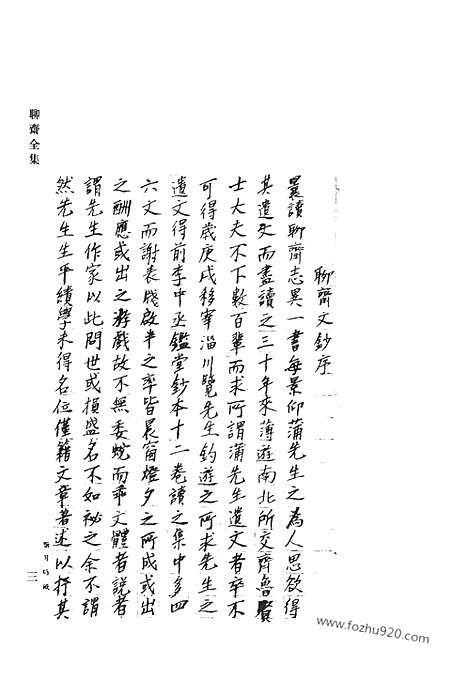 聊齋全集
聊齋文鈔序
曩讀聊齋志異一書每景仰蒲先生之為人思欲得
其遺文而盡讀之三十年來薄遊南北所交齊魯賢
士大夫不下數百輩而求所謂蒲先生遺文者卒不
可得歲庚戌移宰淄川覽先生釣遊之所求先生之
遺文得前李中丞鑑堂鈔本十二卷讀之集中多四
六文而謝表牋啟半之率皆晨窗燈夕之所成或出
之酬應或出之游戲故不無委蛻而乖文體者說者
謂先生作家以此問世或損盛名不如祕之余不謂
然先生生平績學未得名位僅籍文章著述以抒其
三
www.fozhu920.com